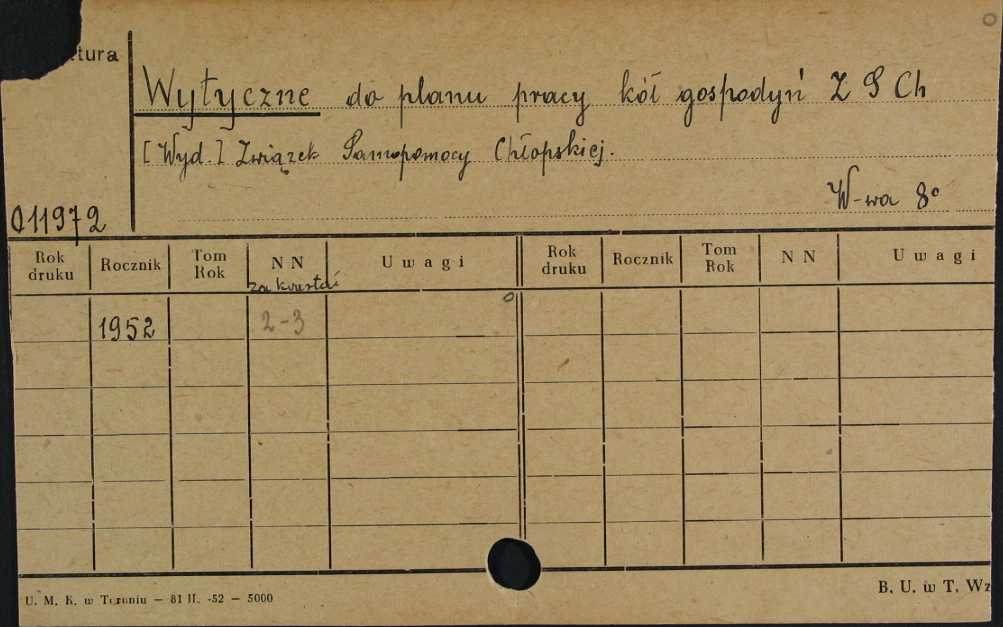 tura
Wytyczne do planu pracy kół gospodyń Z S Ch
[Wyd.] Związek Samopomocy Chłopskiej.
W-wa 8°
011972
Rok druku Rocznik Tom Rok N N Uwagi Rok druku Rocznik Tom Rok N N Uwagi
za kwartał
1952 2-3
U. M. K. w Toruniu — 81 II. -52 — 5000
B. U. w T. Wz